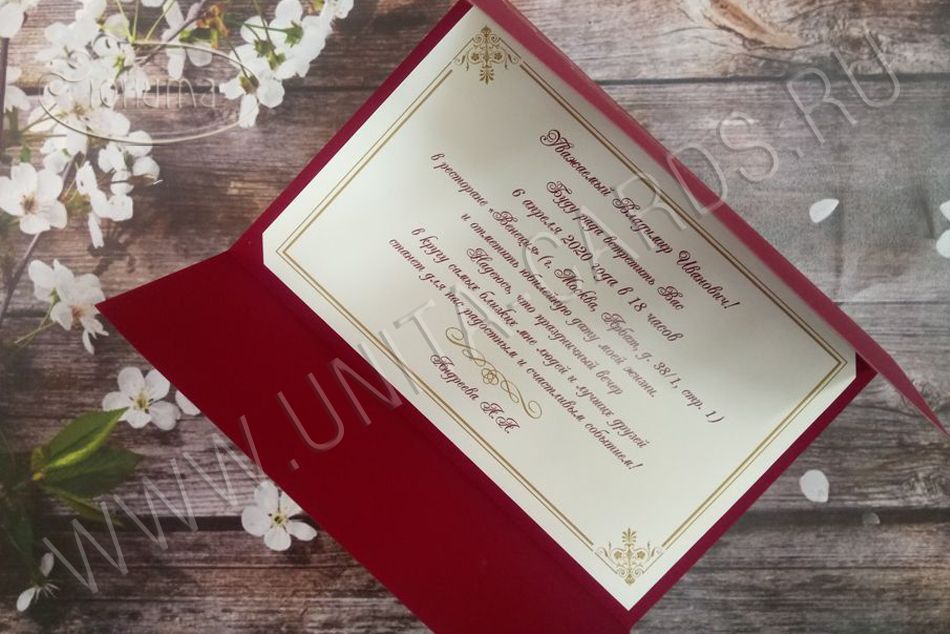 Уважаемый Владимир Иванович!
Буду рада встретить Вас
6 апреля 2020 года в 18 часов
в ресторане «Венеция» (г. Москва, Арбат, д. 38/1, стр. 1)
и отметить юбилейную дату моей жизни.
Надеюсь, что праздничный вечер
в кругу самых близких мне людей и лучших друзей
станет для нас радостным и счастливым событием!
Андреева А.А.
WWW.UNITA-CARDS.RU